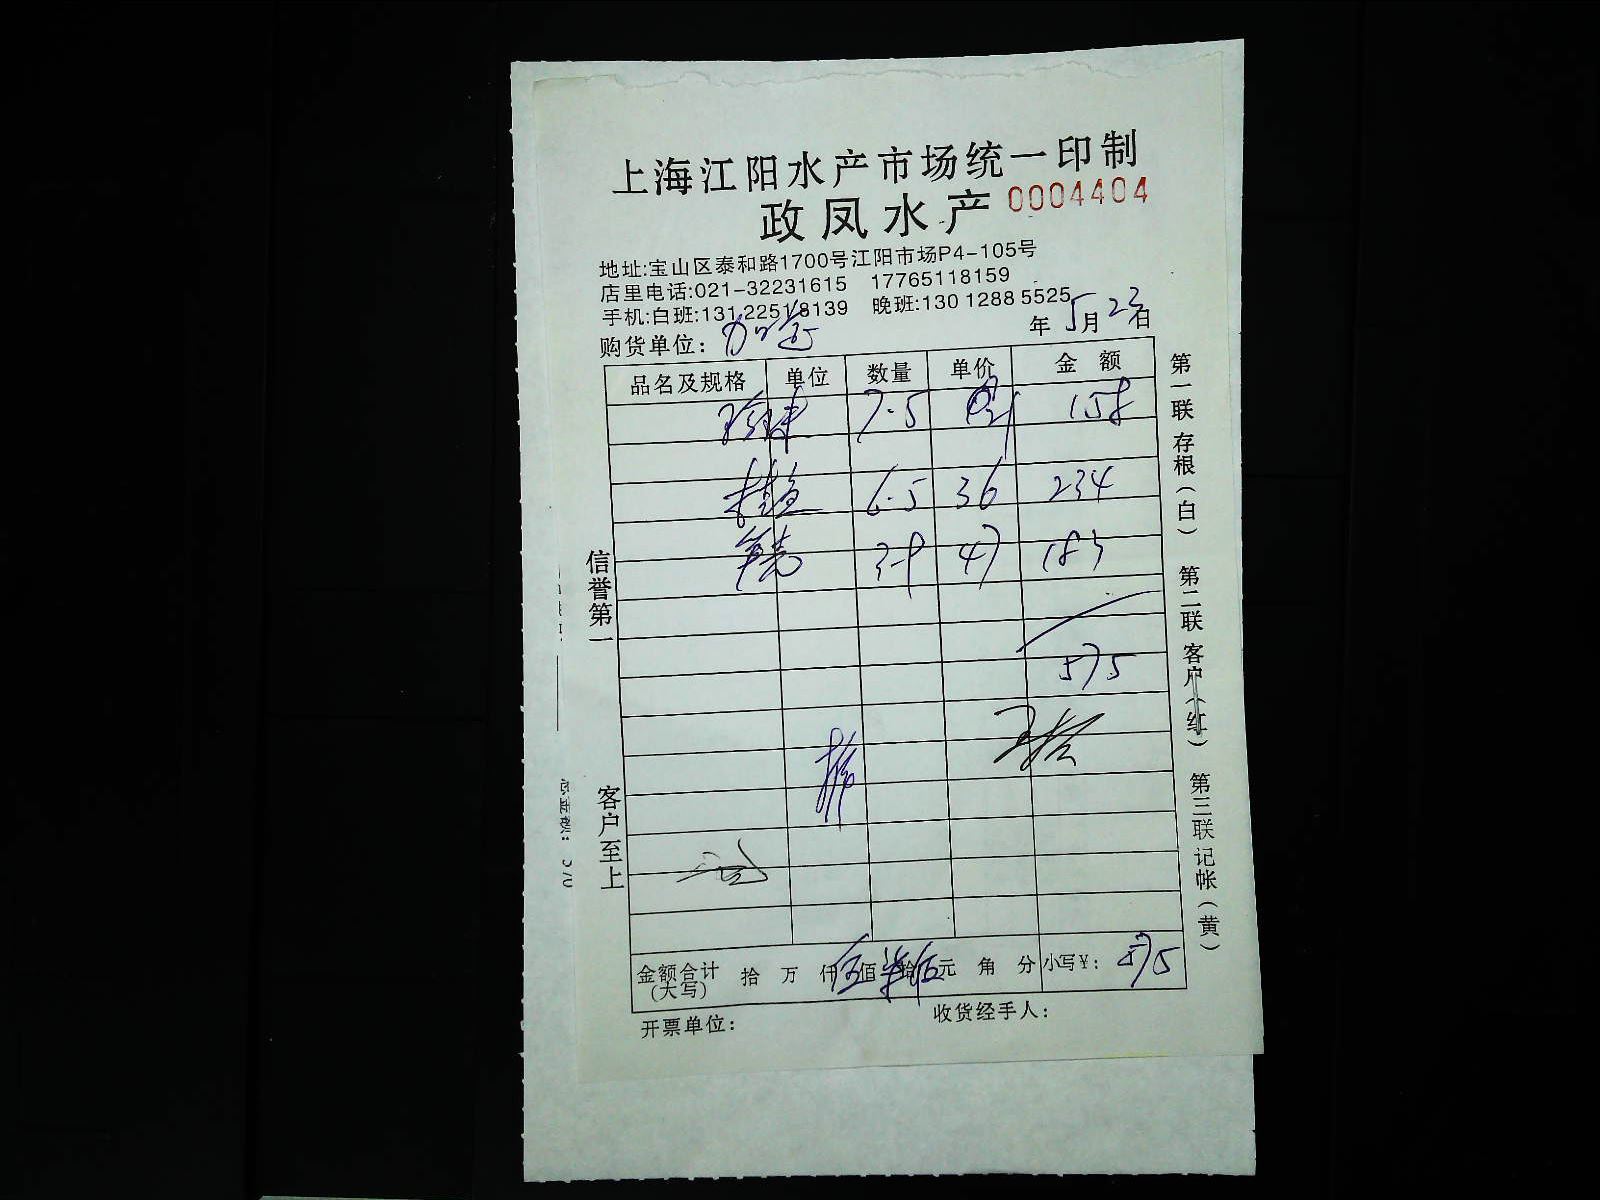 上海江阳水产市场统一印制
政凤水产 0004404
地址:宝山区泰和路1700号江阳市场P4-105号
店里电话:021-32231615 17765118159
手机:白班:131 2251 8139 晚班:130 1288 5525
年 5月23日
购货单位:
品名及规格 单位 数量 单价 金额
7.5 158
6.5 36 234
47 183
575
金额合计(大写) 拾 万 仟 伍佰 柒拾 伍元 角 分 小写¥: 575
开票单位: 收货经手人:
信誉第一 客户至上
第一联 存根(白) 第二联 客户(红) 第三联 记帐(黄)